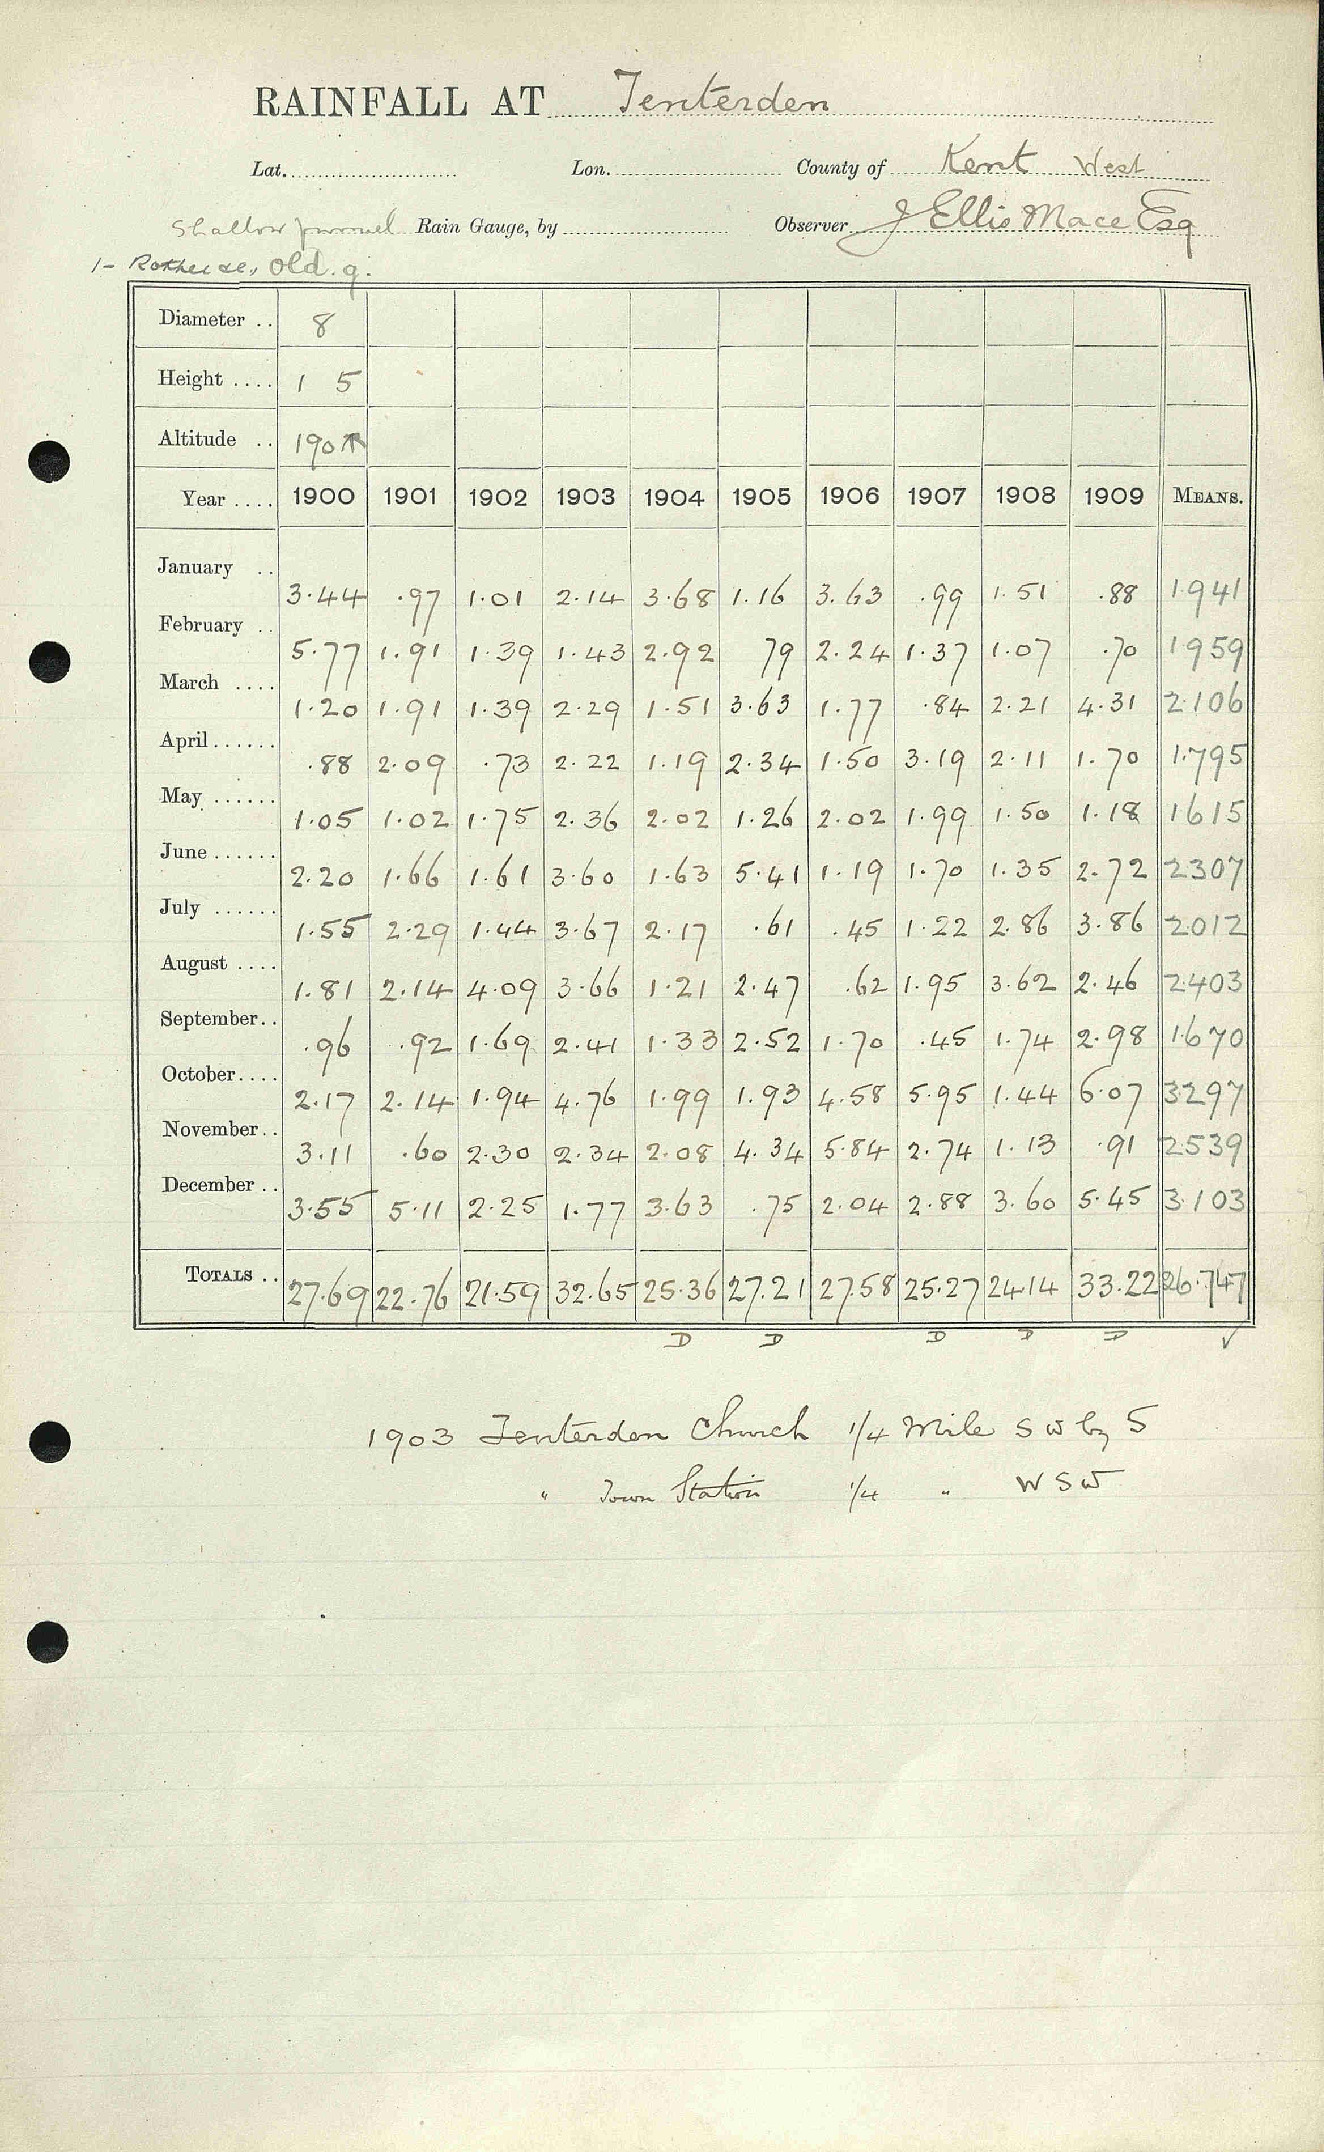 RAINFALL AT Tenterden
Lat. Lon. County of Kent West
Shallow funnel Rain Gauge, by Observer J Ellis Mace Esq
1- Old. g.
Diameter .. 8
Height .... 1 5
Altitude .. 190
Year .... 1900 1901 1902 1903 1904 1905 1906 1907 1908 1909 MEANS.
January .. 3.44 .97 1.01 2.14 3.68 1.16 3.63 .99 1.51 .88 1.941
February .. 5.77 1.91 1.39 1.43 2.92 79 2.24 1.37 1.07 .70 1959
March .... 1.20 1.91 1.39 2.29 1.51 3.63 1.77 .84 2.21 4.31 2.106
April ...... .88 2.09 .73 2.22 1.19 2.34 1.50 3.19 2.11 1.70 1.795
May ...... 1.05 1.02 1.75 2.36 2.02 1.26 2.02 1.99 1.50 1.18 1615
June ...... 2.20 1.66 1.61 3.60 1.63 5.41 1.19 1.70 1.35 2.72 2307
July ...... 1.55 2.29 1.44 3.67 2.17 .61 .45 1.22 2.86 3.86 2012
August .... 1.81 2.14 4.09 3.66 1.21 2.47 .62 1.95 3.62 2.46 2403
September .. .96 .92 1.69 2.41 1.33 2.52 1.70 .45 1.74 2.98 1.670
October .... 2.17 2.14 1.94 4.76 1.99 1.93 4.58 5.95 1.44 6.07 3297
November .. 3.11 .60 2.30 2.34 2.08 4.34 5.84 2.74 1.13 .91 2539
December .. 3.55 5.11 2.25 1.77 3.63 .75 2.04 2.88 3.60 5.45 3.103
TOTALS .. 27.69 22.76 21.59 32.65 25.36 27.21 27.58 25.27 24.14 33.22 26.747
D D D D D ✓
1903 Tenterden Church 1/4 Mile S W by S
" Town Station 1/4 " W S W